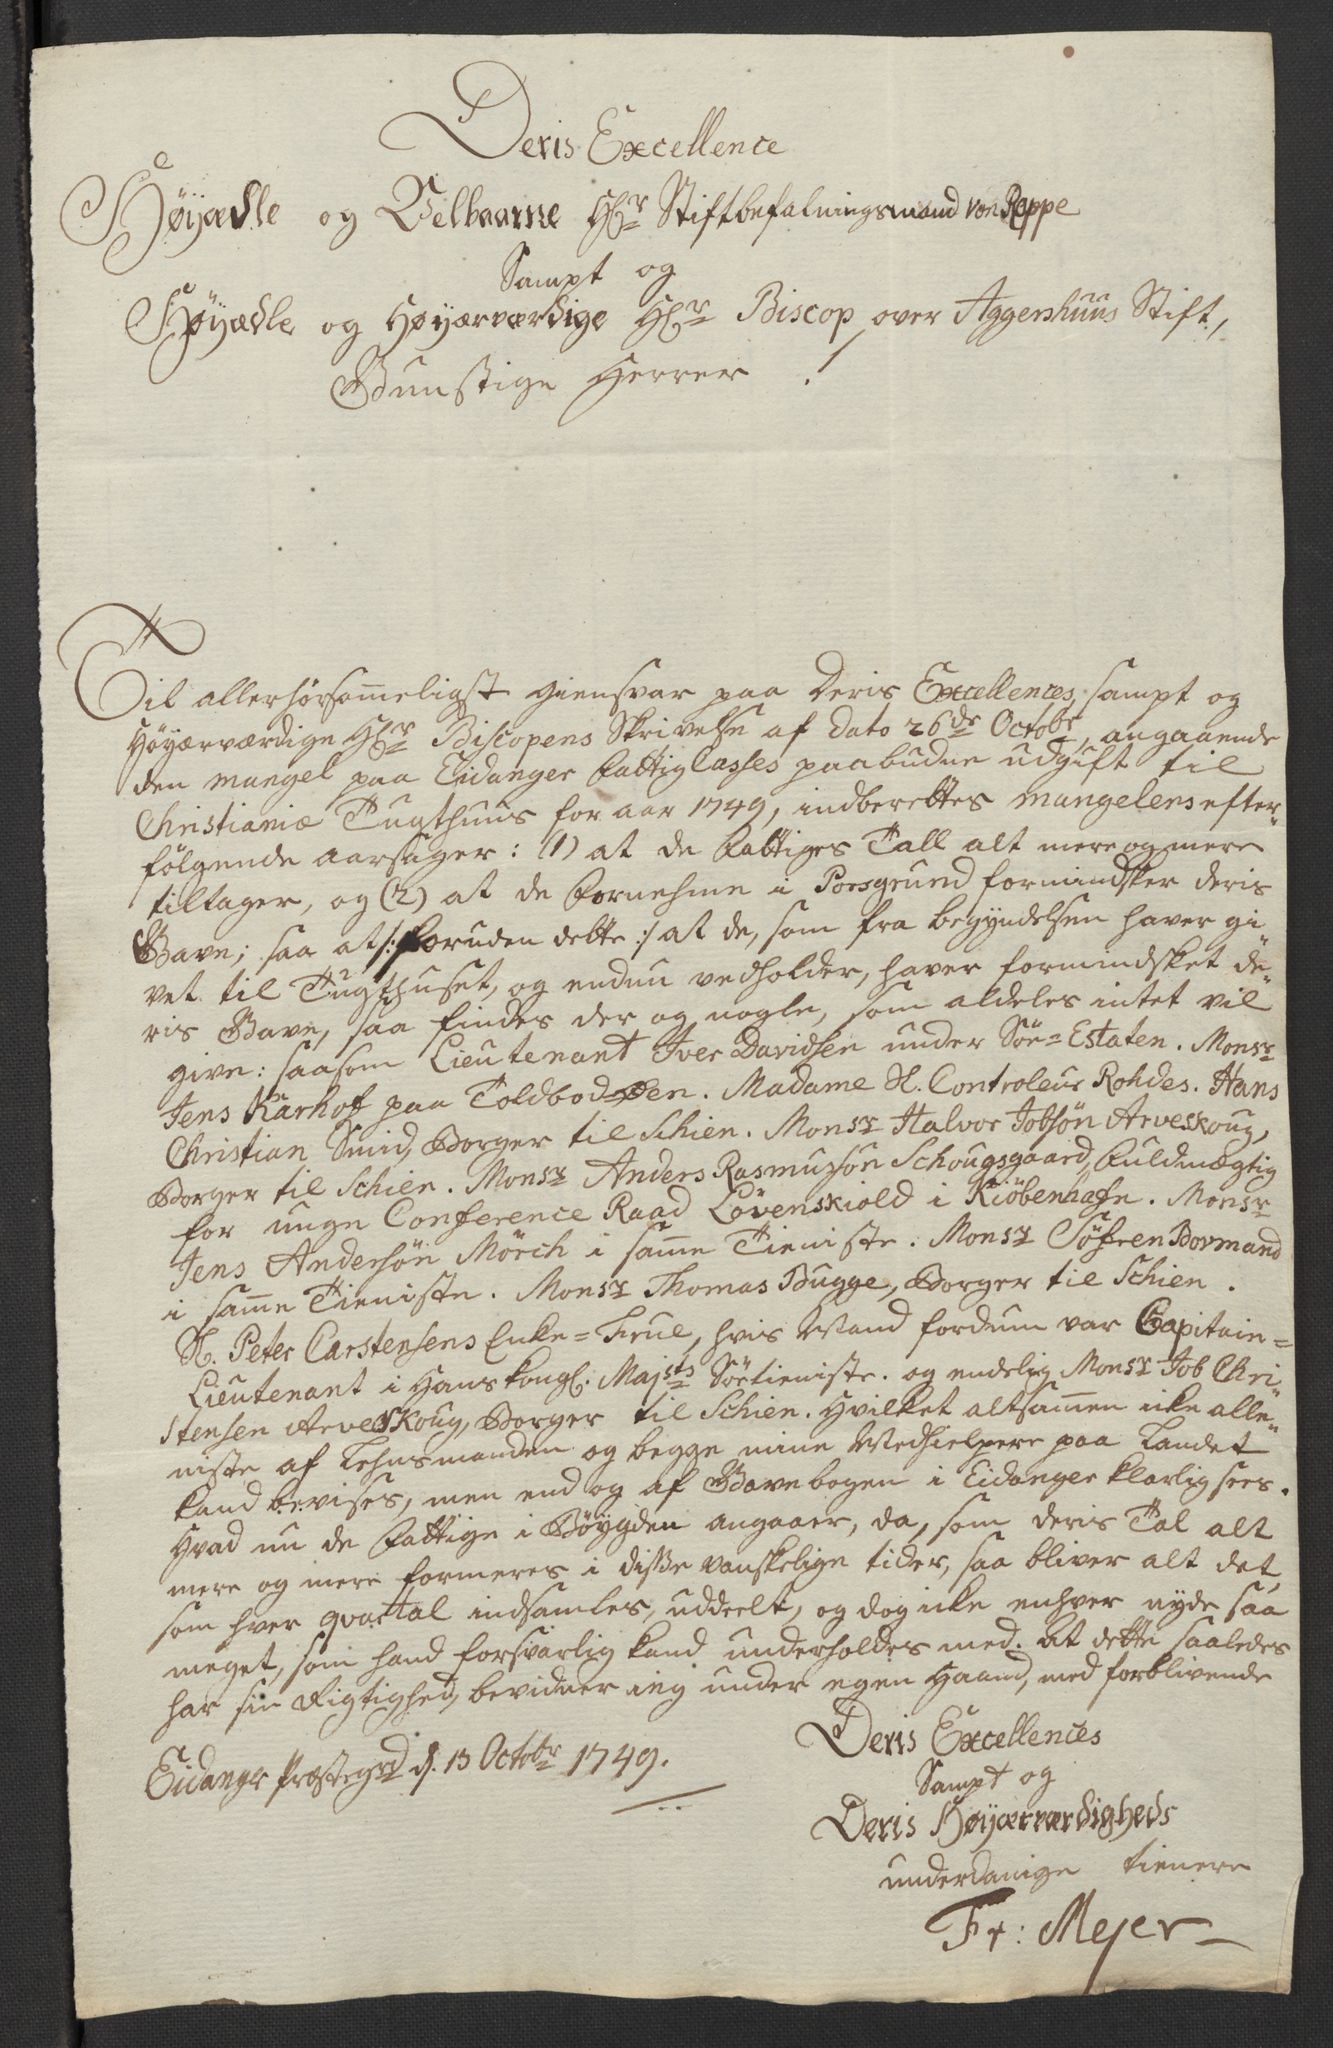 Deris Excellence
Høÿædle og Velbaarne Hr Stiftbefalningsmand von Rappe
Sampt og
Høÿædle og Høÿærværdige Hr Biscop over Aggershuus Stift,
Gunstige Herrer!
Til allerhørsom̄eligst giensvar paa Deris Excellences, sampt og
Høÿærværdige Hr Biscopens Skrivelse af dato 26de Octobr, angaaende
den mangel paa Eidanger Fattig Casses paabudne udgift til
Christianiæ Tugthuus for aar 1749, indberettes mangelens efter-
følgende aarsager: (1) at de Fattiges Tall alt mere og mere
tiltager, og (2) at de Fornehme i Porsgrund formindsker deris
Gave; saa at /: foruden dette :/ at de, som fra begÿndelsen haver gi
vet til Tugthuset, og endnu vedholder, haver formindsket de-
ris Gave, saa findes der og nogle, som aldeles intet vil
give: saasom Lieutenant Iver Davidsen under Söe-Estaten. Monsr
Jens Karhof paa Toldboden. Madame Sl. Controleur Rohdes. Hans
Christian Smid, Borger til Schien. Monsr Halvor Jobsön Arveskoug,
Borger til Schien. Monsr Anders Rasmusøn Schougsgaard, Fuldmægtig
for unge Conference Raad Lövenskiold i Kiöbenhafn. Monsr
Jens Andersön Mörch i sam̄e Tieniste. Monsr Söfren Bormand
i sam̄e Tieniste. Monsr Thomas Bugge, Borger til Schien.
Sl. Peter Carstensens Enke-Frue, hvis Mand fordum var Capitain-
Lieutenant i Hans kongl. Majsts Söetieniste. og endelig Monsr Job Chri-
stensen Arveskoug, Borger til Schien. Hvilket altsam̄en icke alle-
niste af Lehnsmanden og begge mine Medhielpere paa Landet
kand bevises, men end og af Gavebogen i Eidanger klarlig sees.
Hvad nu de Fattige i Böÿgden angaaer, da, som deris Tal alt
mere og mere formeres i disse vanskelige tider, saa bliver alt det,
som hver qvartal indsamles, uddeelt, og dog icke enhver nÿde saa
meget, som hand forsvarlig kand underholdes med. At dette saaledes
har sin Rigtighed, bevidner ieg under egen Haand, med forblivende
Eidangr Præstegrd d. 13 Octobr 1749.
Deris Excellences
Sampt og
Deris Høÿærværdigheds
underdanige tienere
Fr: Mejer